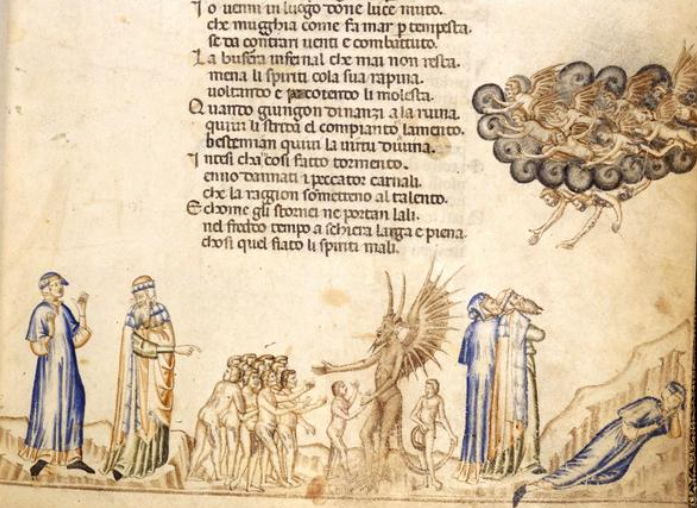 Io venni in luogo done luce muto.
che mugghia come fa mar p tempesta.
se da contrari uenti e combattuto.
La bufera infernal che mai non resta.
mena li spiriti cola sua rapina.
uoltando e percotento li molesta.
Quanto giungon dinanzi a la ruina.
quiui li strida el compianto lamento.
bestemian quiui la uirtu diuina.
Intesi cha cosi fatto tormento.
enno dannati i peccator carnali.
che la raggion sometteno al talento.
E chome gli stornei ne portan lali.
nel freddo tempo a schiera larga e piena
chosi quel fiato li spiriti mali.